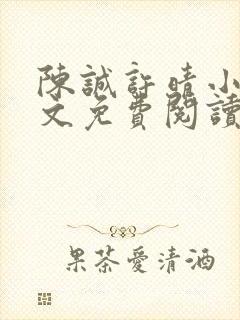 陳誠許晴小
文免費閱讀
果茶愛清酒